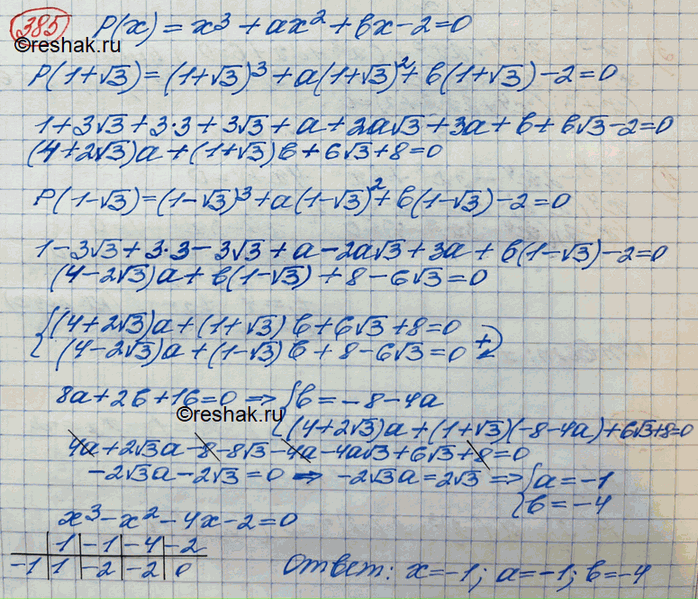 385 P(x) = x³ + ax² + bx - 2 = 0
©reshak.ru
P(1+√3) = (1+√3)³ + a(1+√3)² + b(1+√3) - 2 = 0
1 + 3√3 + 3·3 + 3√3 + a + 2a√3 + 3a + b + b√3 - 2 = 0
(4+2√3)a + (1+√3)b + 6√3 + 8 = 0
P(1-√3) = (1-√3)³ + a(1-√3)² + b(1-√3) - 2 = 0
1 - 3√3 + 3·3 - 3√3 + a - 2a√3 + 3a + b(1-√3) - 2 = 0
(4-2√3)a + b(1-√3) + 8 - 6√3 = 0
{(4+2√3)a + (1+√3)b + 6√3 + 8 = 0
(4-2√3)a + (1-√3)b + 8 - 6√3 = 0 +
8a + 2b + 16 = 0 => {b = -8 - 4a
©reshak.ru (4+2√3)a + (1+√3)(-8-4a) + 6√3 + 8 = 0
4a + 2√3a - 8 - 8√3 - 4a - 4a√3 + 6√3 + 8 = 0
-2√3a - 2√3 = 0 => -2√3a = 2√3 => {a = -1
b = -4
x³ - x² - 4x - 2 = 0
1 | -1 | -4 | -2
-1 | 1 | -2 | -2 | 0
Ответ: x = -1; a = -1; b = -4